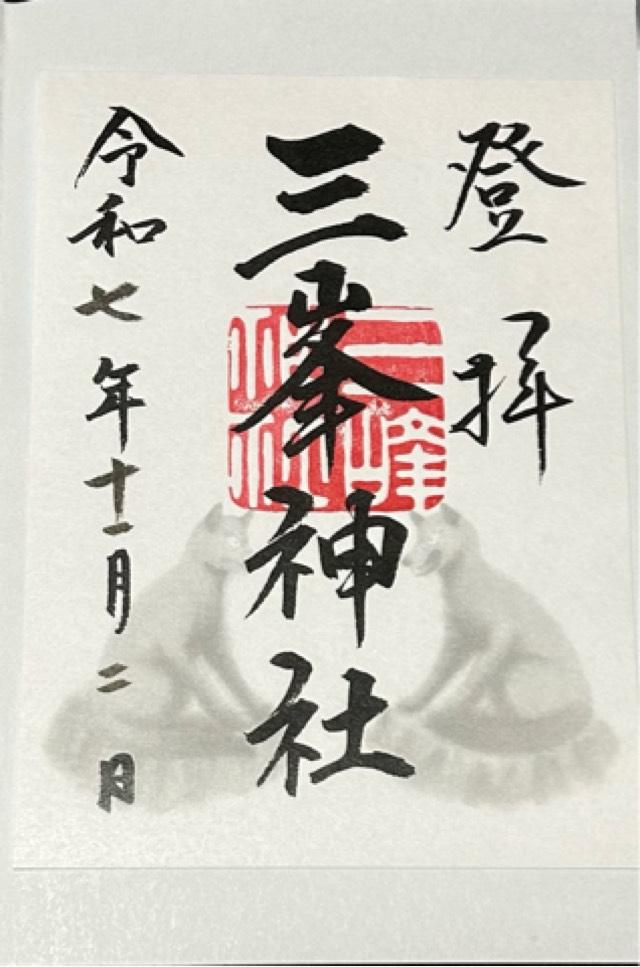 登拝
三峯神社
令和七年十一月二日